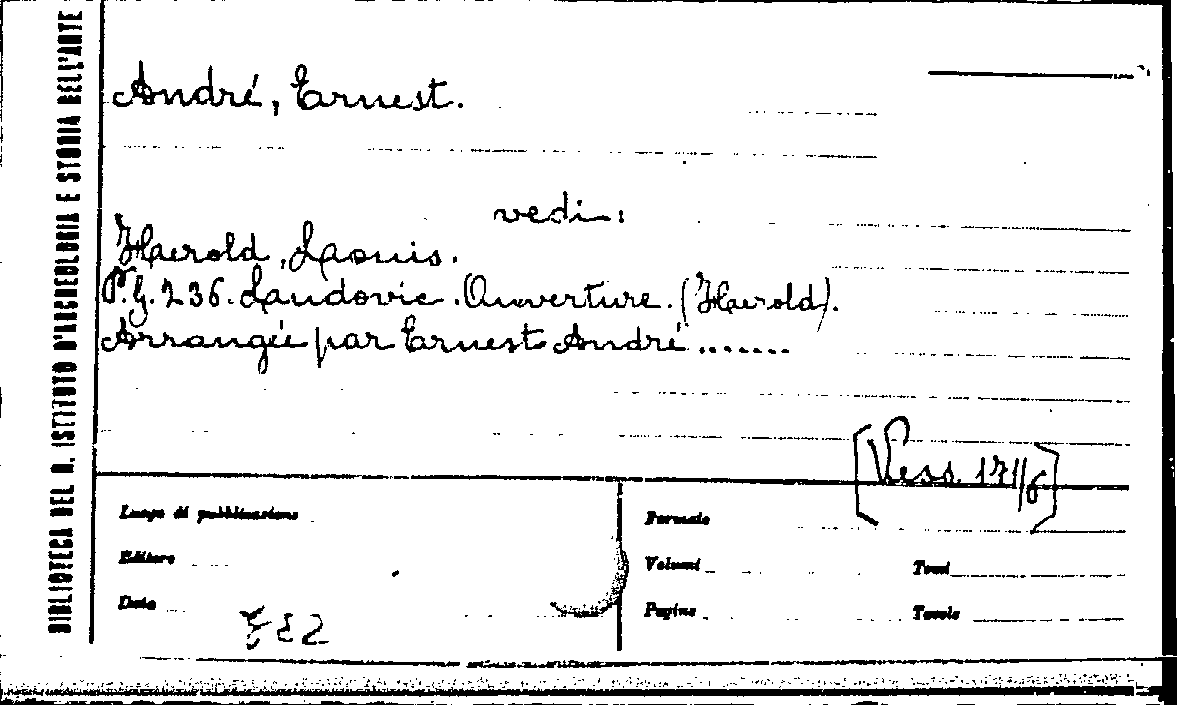 BIBLIOTECA DEL R. ISTITUTO D'ARCHEOLOGIA E STORIA DELL'ARTE
André, Ernest.
vedi:
Hærold, Laouis.
P.G. 236. Laudovic. Ouverture. (Hærold).
Arrangée par Ernest André.......
[Vess. 171/6]
Luogo di pubblicazione
Formato
Editore
Volumi
Tomi
Data
Pagine
Tavole